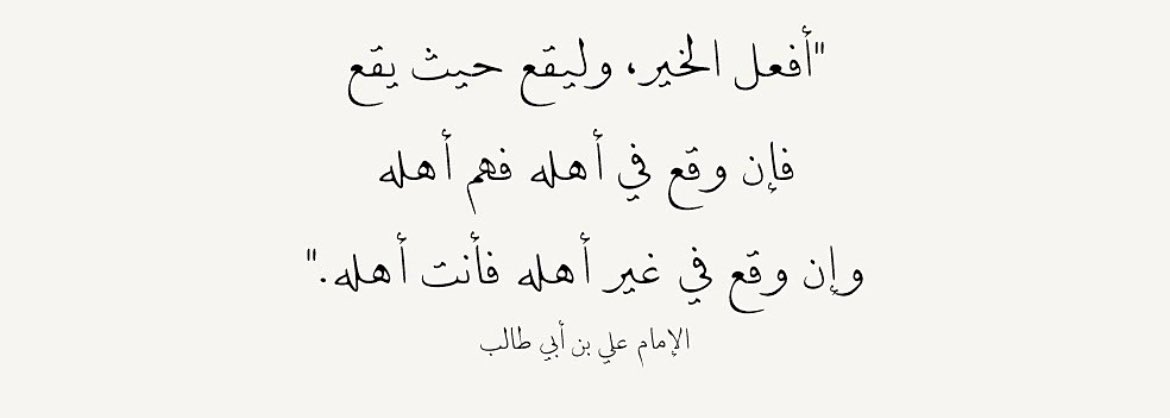 "أفعل الخير، وليقع حيث يقع
فإن وقع في أهله فهم أهله
وإن وقع في غير أهله فأنت أهله."
الإمام علي بن أبي طالب